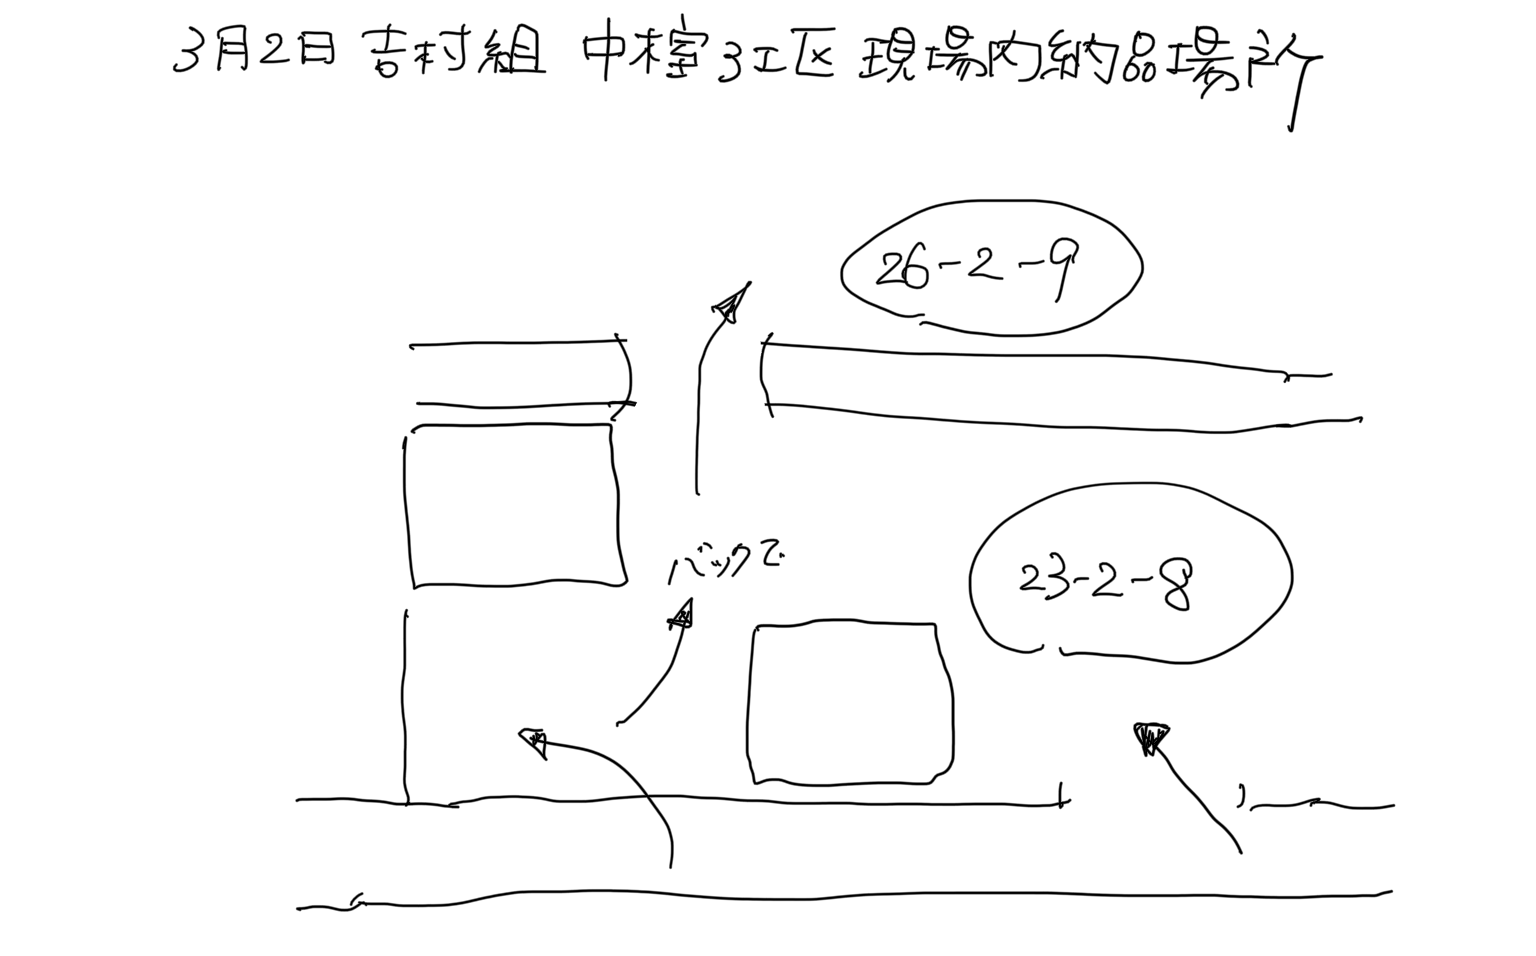 3月2日 吉村組 中樟3工区 現場内納品場所
26-2-9
バックで
23-2-8